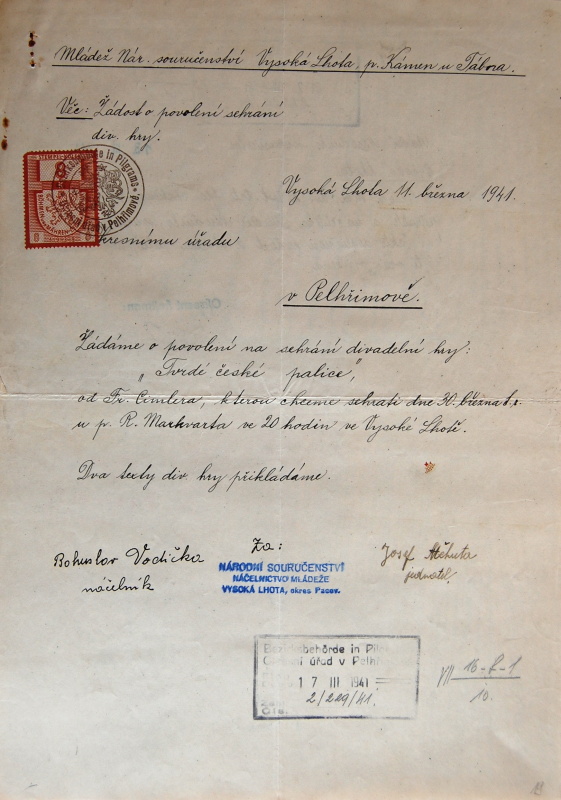 Mládež Nár. souručenství Vysoká Lhota, p. Kámen u Tábora.
Věc: Žádost o povolení sehrání
div. hry.
STEMPEL
8
Bezirksbehörde in Pilgrams
Okresní úřad v Pelhřimově
8
BÖHMEN-MÄHREN
Vysoká Lhota 11. března 1941.
Okresnímu úřadu
v Pelhřimově.
Žádáme o povolení na sehrání divadelní hry:
„Tvrdé české palice",
od Fr. Cimlera, kterou chceme sehráti dne 30. března t.r.
u p. R. Markvarta ve 20 hodin ve Vysoké Lhotě.
Dva texty div. hry přikládáme.
Bohuslav Vodička
náčelník
Za:
NÁRODNÍ SOURUČENSTVÍ
NÁČELNICTVO MLÁDEŽE
VYSOKÁ LHOTA, okres Pacov.
Josef
jednatel.
Bezirksbehörde in Pil
Okresní úřad v Pelhř
17 III 1941
2/229/41.
VII 16-8-1
10.